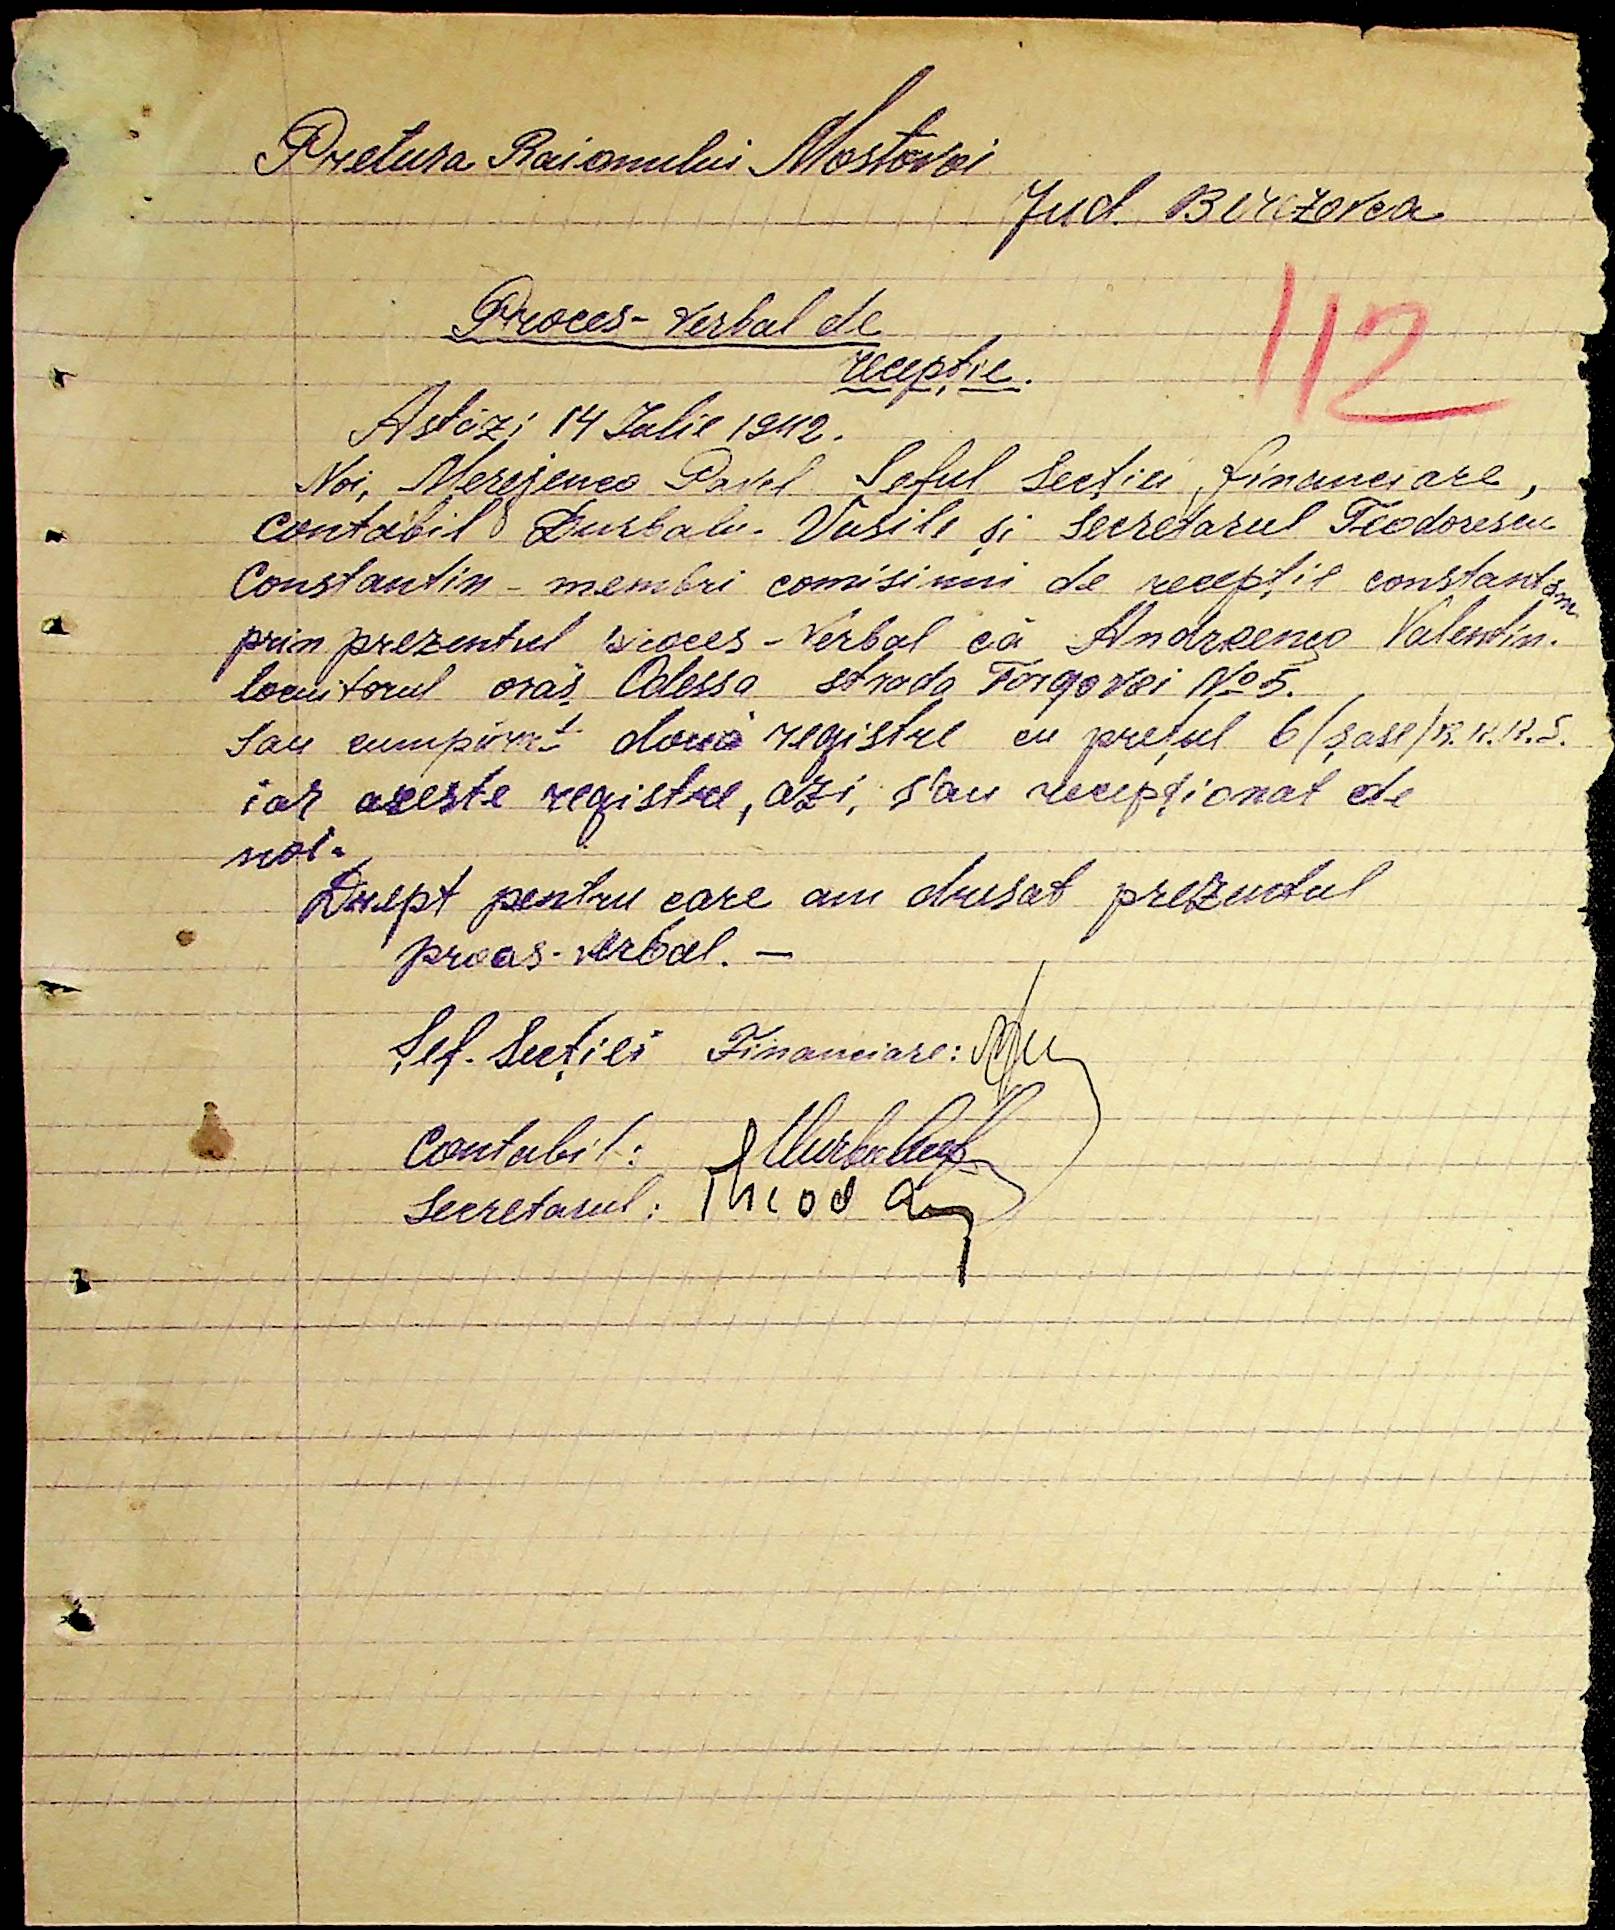 Pretura Raionului Mostovoi
Jud. Berezovca
112
Proces-verbal de
recepție.
Astăzi 14 Iulie 1942.
Noi, Merejenco Pavel Șeful Secției financiare,
contabil Durbalu Vasile și secretarul Teodorescu
Constantin - membri comisiunii de recepție constantăm
prin prezentul proces-verbal că Andreenco Valentin.
locuitorul oraș Odessa strada Torgovoi No 5.
sau cumpărat două registre cu prețul 6 (șase) R.K.K.S.
iar aceste registre, azi, s'au recepționat de
noi.
Drept pentru care am dresat prezentul
proces-verbal. —
Șef. Secției Financiare:
Contabil:
Secretarul: Theod